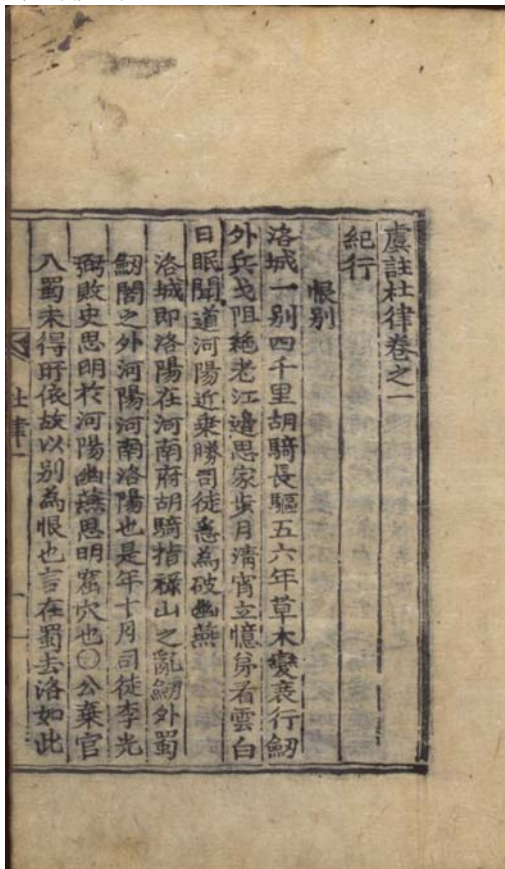 虞註杜律卷之一
紀行
恨別
洛城一別四千里胡騎長驅五六年草木變衰行劒
外兵戈阻絶老江邊思家步月淸宵立憶弟看雲白
日眠聞道河陽近乗勝司徒急為破幽燕
洛城即洛陽在河南府胡騎指禄山之亂劒外蜀
劒閣之外河陽河南洛陽也是年十月司徒李光
弼敗史思明於河陽幽燕思明窟穴也○公棄官
入蜀未得所依故以別為恨也言在蜀去洛如此
杜律一